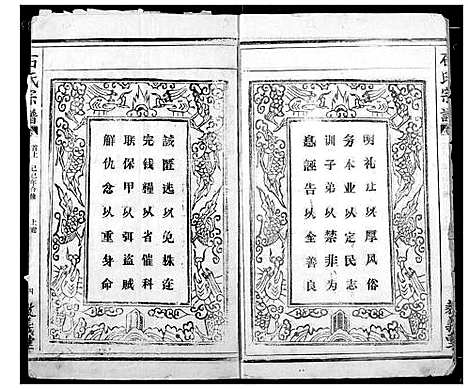 石氏宗譜
明礼让以厚风俗
务本业以定民志
训子弟以禁非为
息誣告以全善良
誡匿迯以免株连
完钱糧以省催科
联保甲以弭盗贼
解仇忿以重身命
石氏宗譜
首上
己巳年合修
上
四